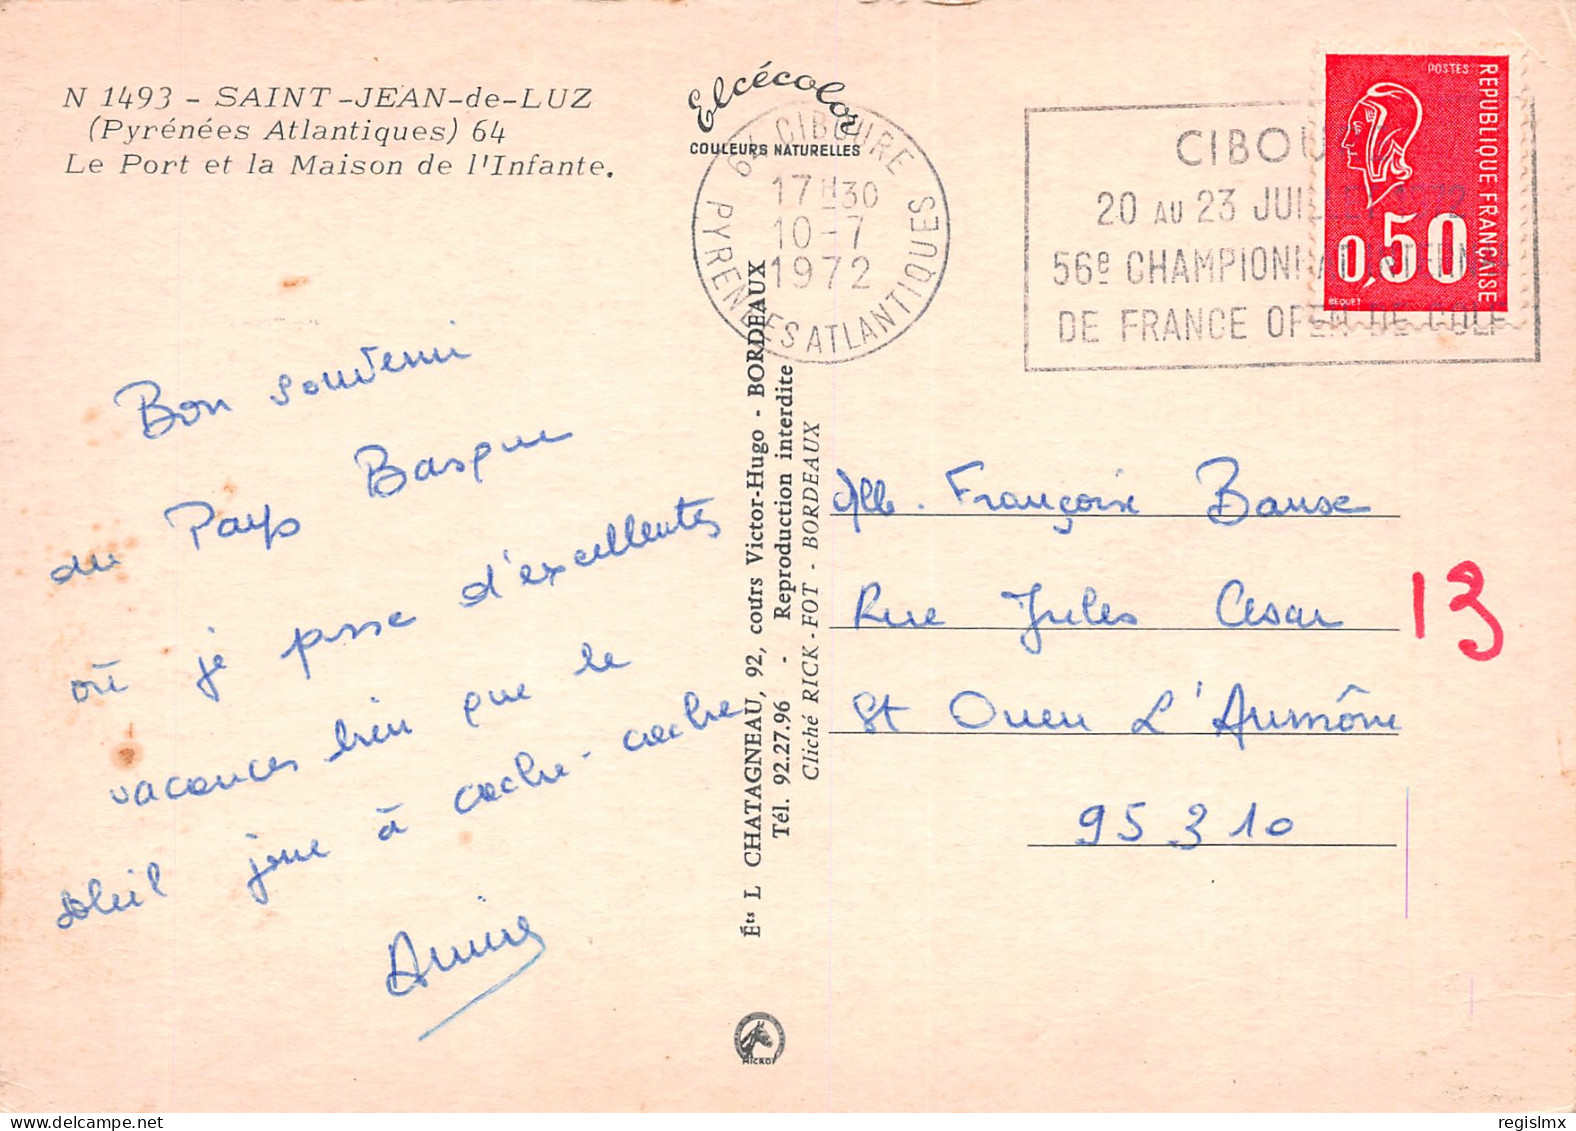 N 1493 - SAINT-JEAN-de-LUZ
(Pyrénées Atlantiques) 64
Le Port et la Maison de l'Infante.
Elcécolor
COULEURS NATURELLES
64 CIBOURE
17H30
10-7
1972
PYRENEES ATLANTIQUES
CIBOURE
20 AU 23 JUILLET 1972
56e CHAMPIONNAT INTERN.
DE FRANCE OPEN DE GOLF
POSTES
REPUBLIQUE FRANÇAISE
0,50
BEQUET
Bon souvenir
du Pays Basque
où je passe d'excellentes
vacances bien que le
soleil joue à cache-cache
Éts L CHATAGNEAU, 92, cours Victor-Hugo - BORDEAUX
Tél. 92.27.96 - Reproduction interdite
Cliché RICK-FOT - BORDEAUX
Mlle. Françoise
Rue Jules Cesar
St Ouen L'Aumône
95310
13
MICRO
regislmx